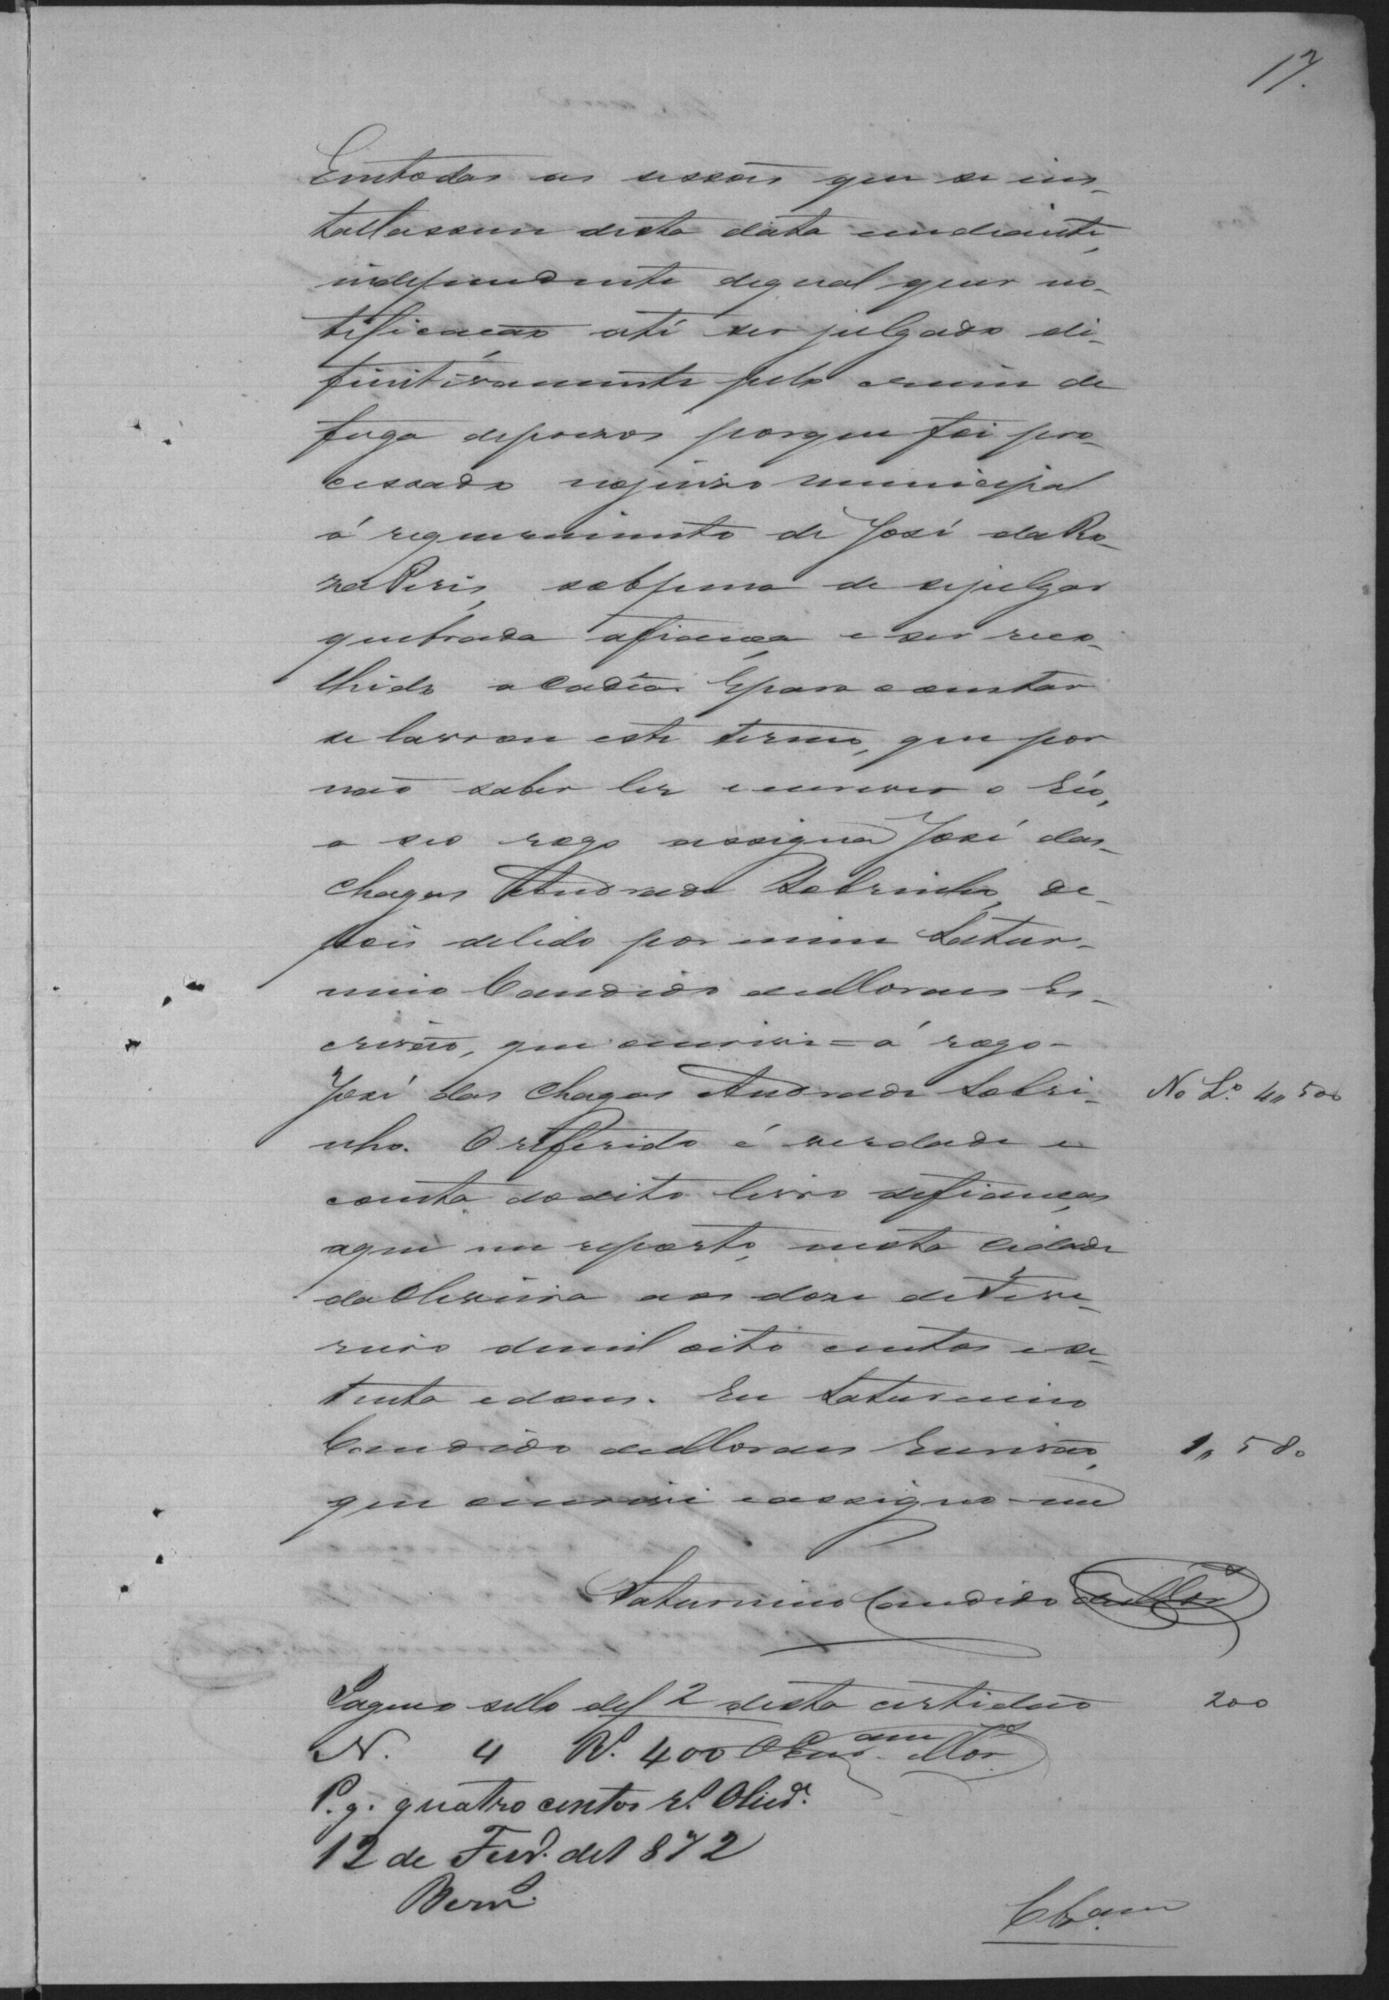 17.
Emtodas as sessões que se ins-
tallassem desta data emdiante,
independente dequal quer no-
tificação até ser julgado di-
finitivamente pelo crime de
fuga depresos porque foi pro-
cessado nojuizo municipal
á requerimento de José da Ro-
za Peris, sobpena de sejulgar
quebrada afiança e ser reco-
lhido a Cadêa. Epara constar
se lavrou este termo, que por
não saber ler e escrever o Réo,
a seo rogo assigna José das
Chagas Andrade Sobrinho, de-
pois delido por mim Satur-
nino Candido deMoraes Es-
crivão, que escrevi = á rogo -
José das Chagas Andrade Sobri-
nho. O referido é verdade e
consta dodito livro defianças
aque me reporto, nesta Cidade
da Oliveira aos doze de Feve-
reiro demil oito centos e se-
tenta edous. Eu Saturnino
Candido deMoraes Escrivão,
que escrevi eassigno-me
Saturnino Candido de Mor.
No L.º 4,,500
1,,580
Pagou sello de f 2 desta certidão
200
N. 4 R. 400
P. g. quatro centos r.s Oliv.ª
12 de Fev.º de 1872